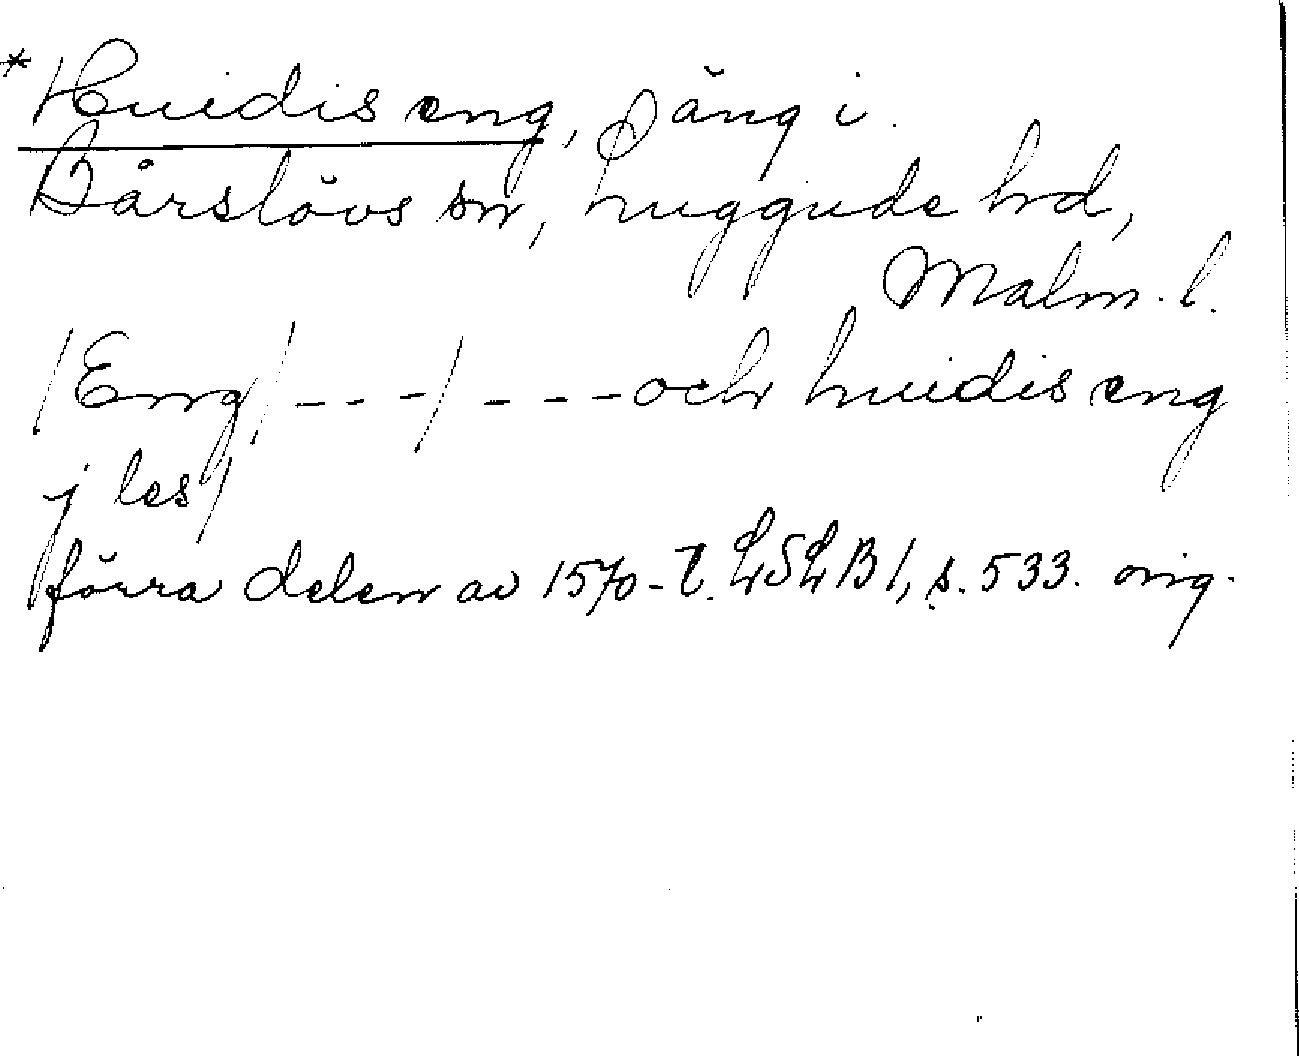 *Huidis eng, äng i
Bårslövs sn, Luggude hd,
Malm. l.
/Eng/ --- / --- och huidis eng
j les/
förra delen av 1570-t. LSLB 1, s. 533. orig.